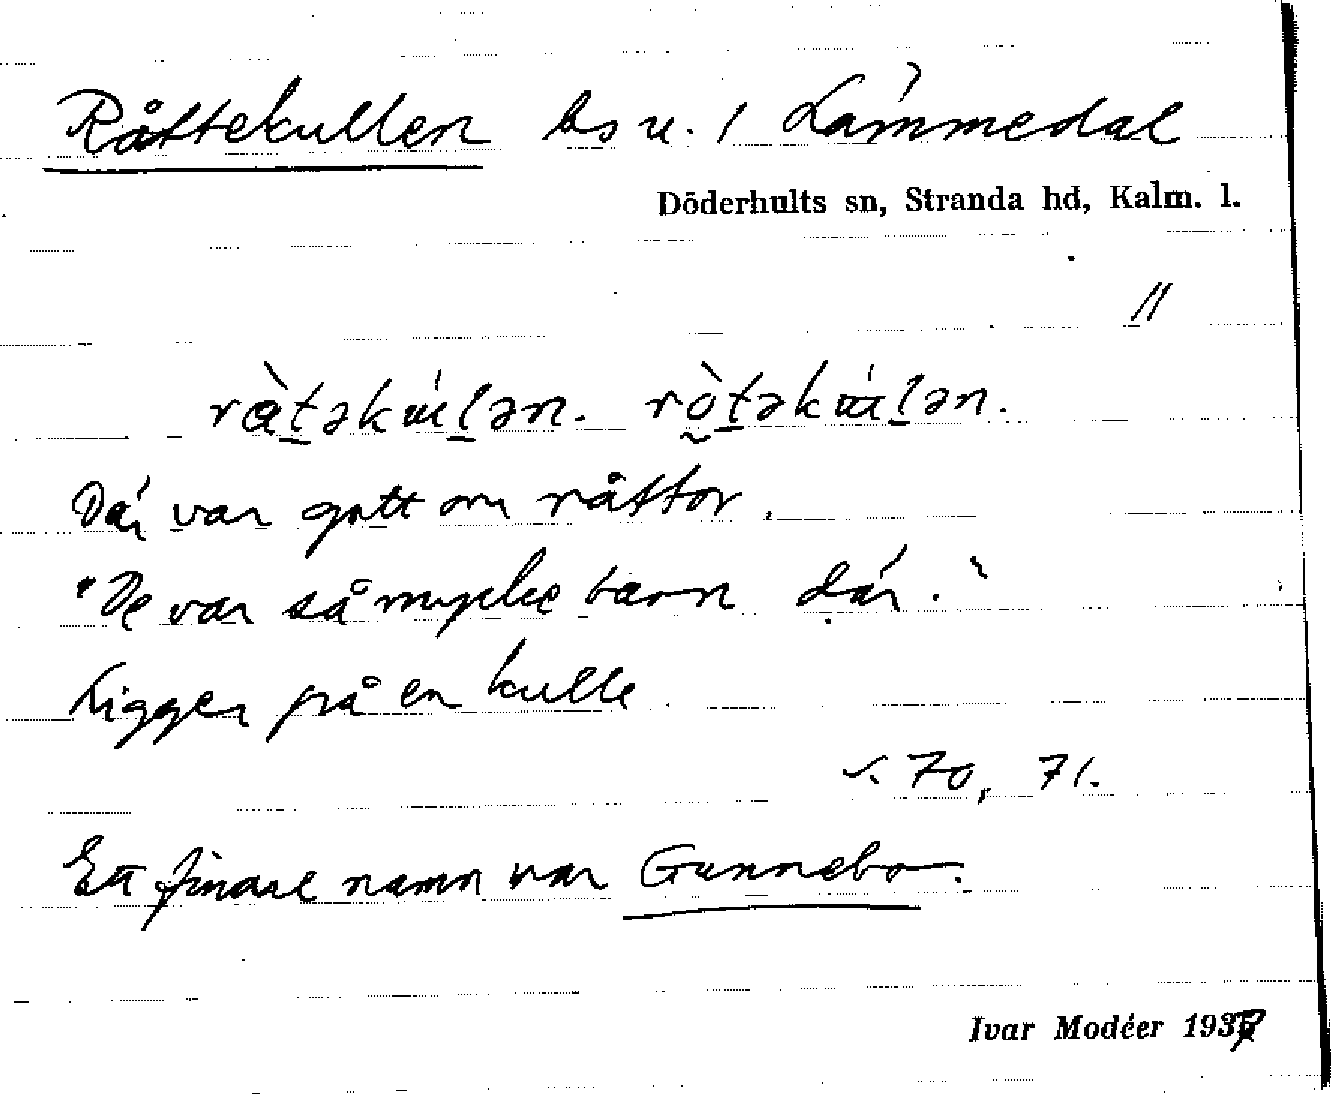 Råttekullen bs u. 1 Lämmedal
Döderhults sn, Stranda hd, Kalm. l.
//
Där var gott om råttor.
"De var så mycke barn där."
Ligger på en kulle
s. 70, 71.
Ett finare namn var Gunnebo.
Ivar Modéer 1937